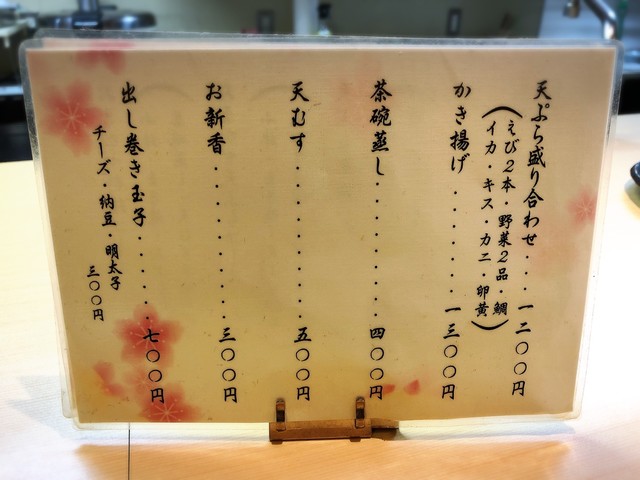 天ぷら盛り合わせ....一二〇〇円
(えび2本・野菜2品・鯛
イカ・キス・カニ・卵黄)
かき揚げ.........一三〇〇円
茶碗蒸し...........四〇〇円
天むす............五〇〇円
お新香............三〇〇円
出し巻き玉子......七〇〇円
チーズ・納豆・明太子
三〇〇円